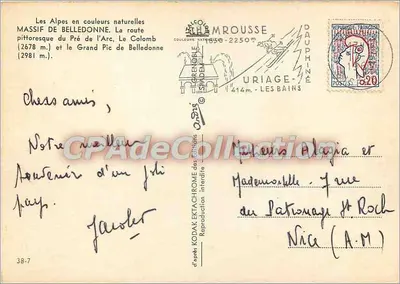 Les Alpes en couleurs naturelles
MASSIF DE BELLEDONNE. La route
pittoresque du Pré de l'Arc, Le Colomb
(2678 m.) et le Grand Pic de Belledonne
(2981 m.).
CHAMROUSSE
1650-2250m
DAUPHINÉ
URIAGE-
414m-LES BAINS
REPUBLIQUE FRANÇAISE
0,20
CPAdeCollection
Chers amis,
Notre meilleur
souvenir d'un joli
pays.
Monsieur et
Mademoiselle
du Patronage St Roch
Nice (A.M)
d'après KODAK EKTACHROME des Editions
Reproduction interdite
38-7